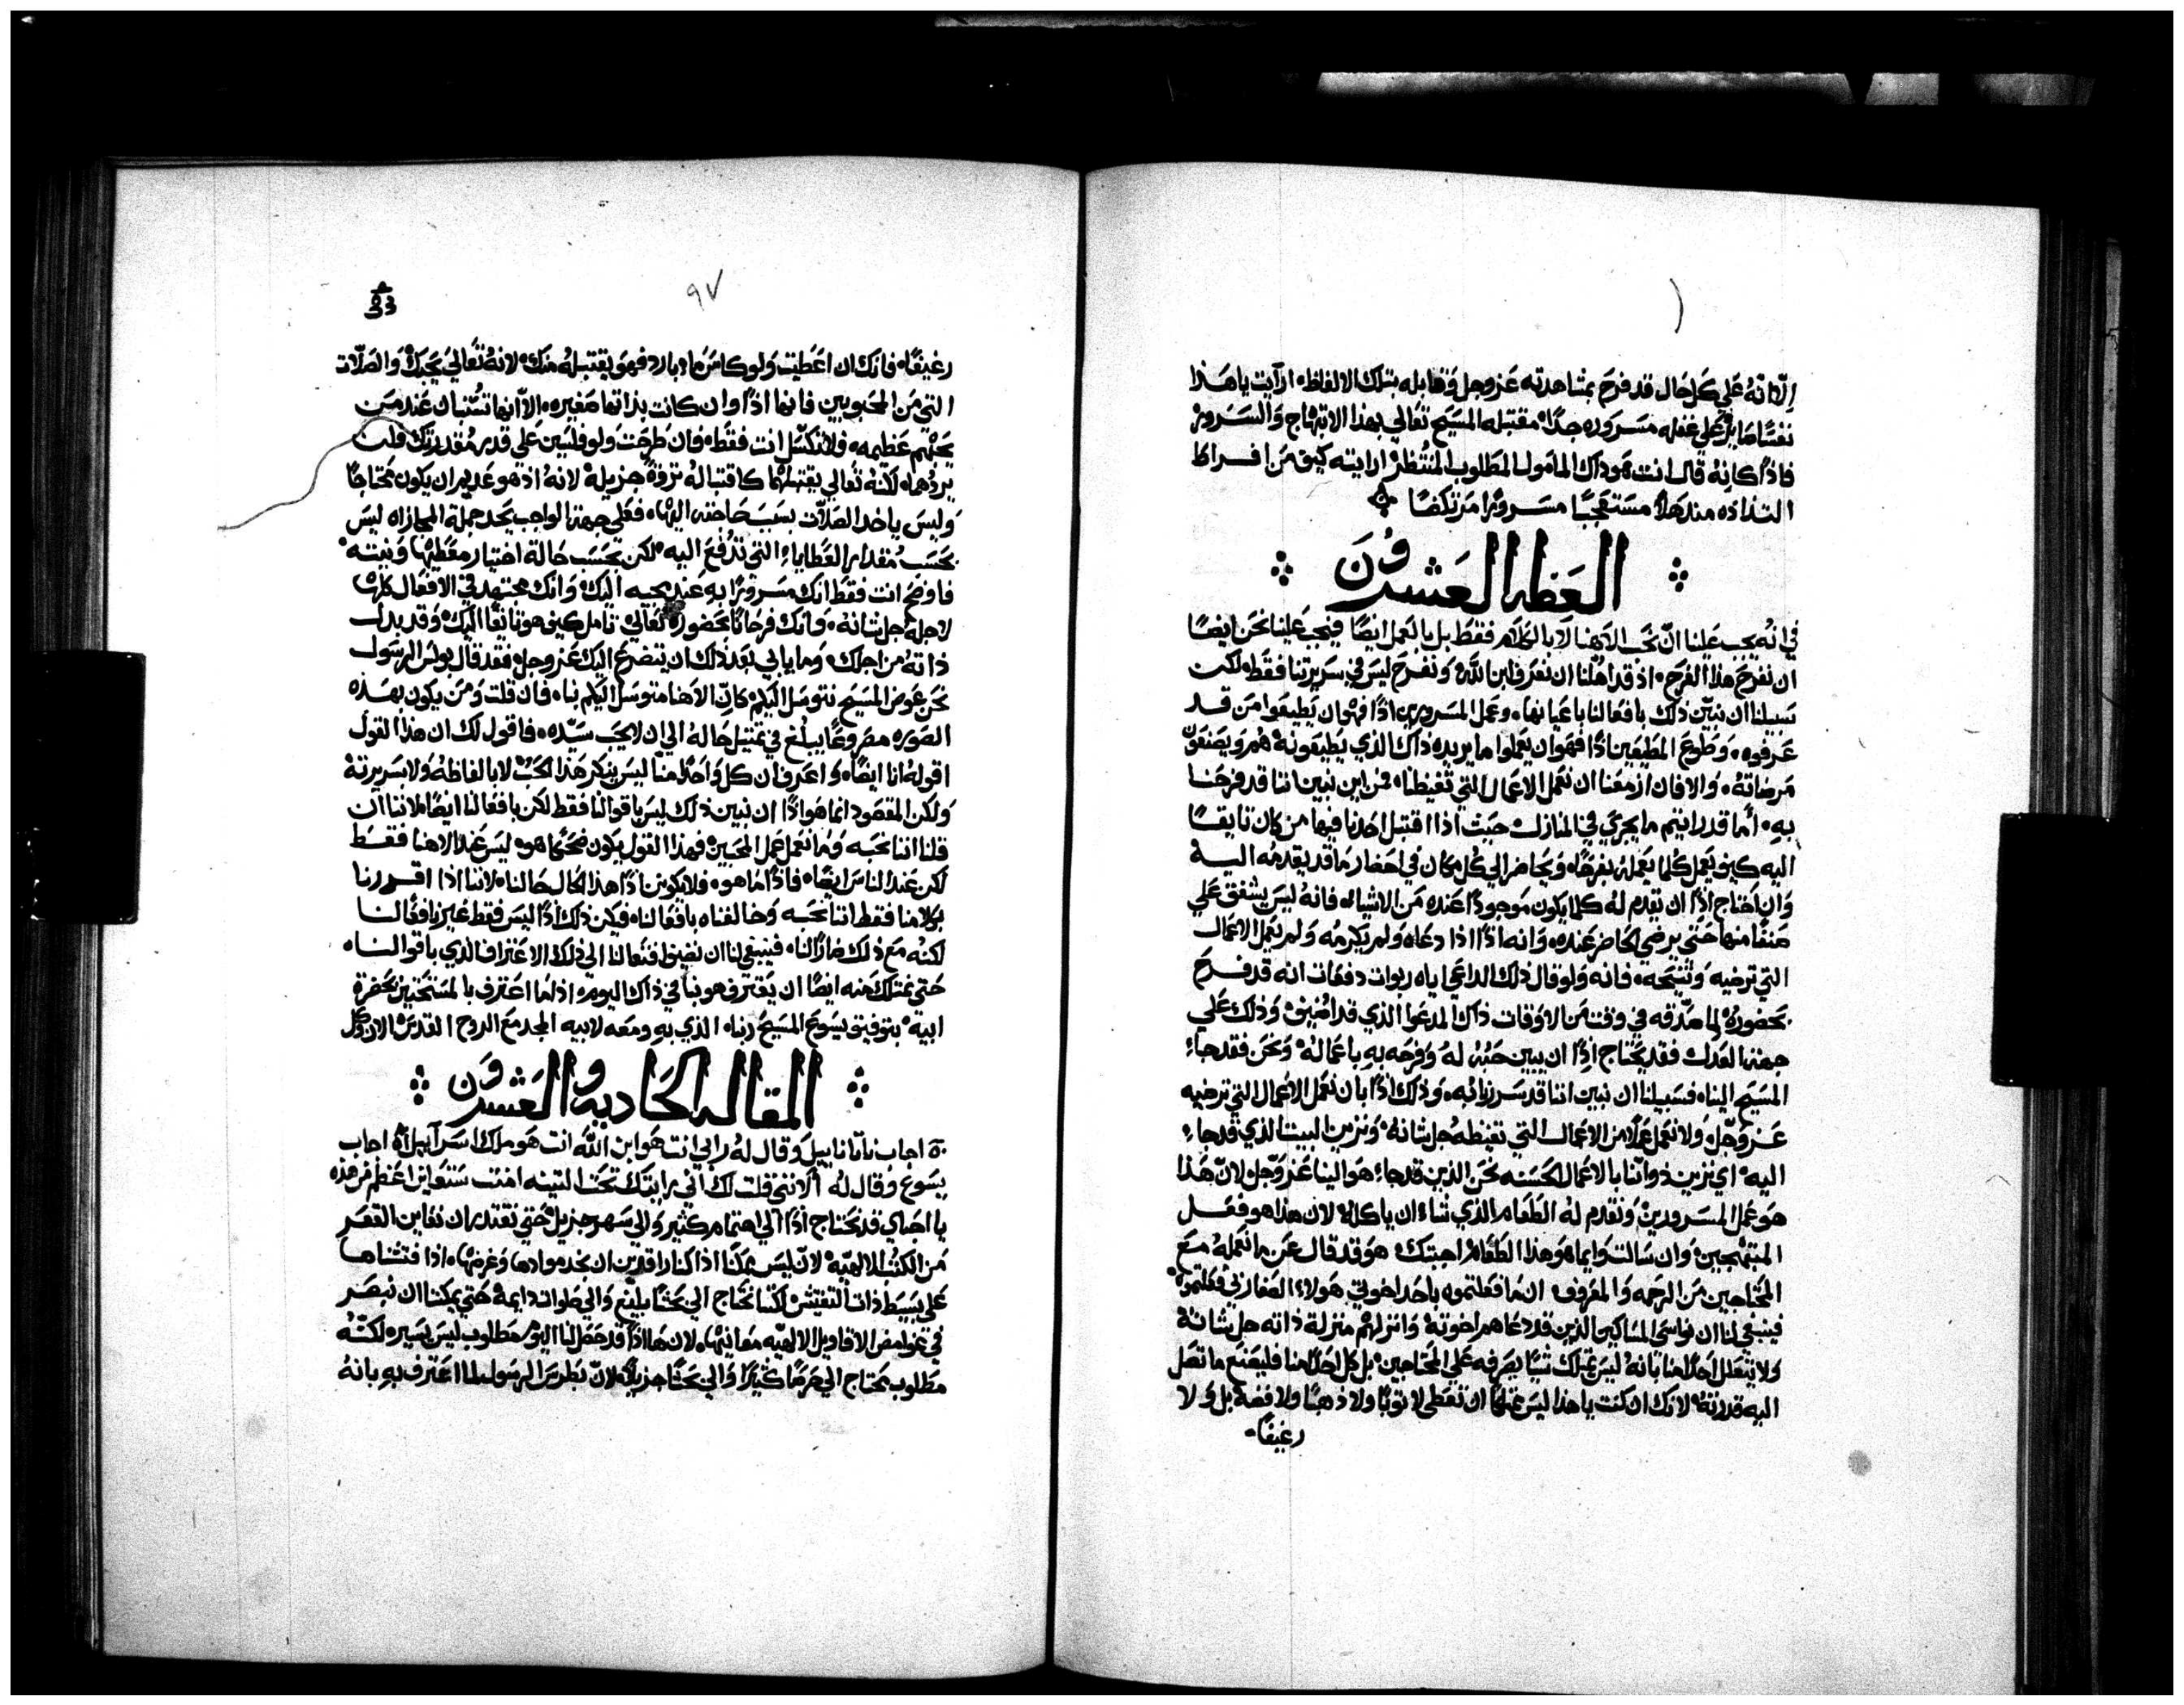 إلّا انهُ علي كل حال قد فرح بمشاهدته عز وجل وقابله بتلك الالفاظ، ارآيت ياهذا
نفسًا مسروره جدًا، مقتبله المسيح تعالي بهذا الابتهاج والسرور
فاذًا كانه قال انت هو ذاك المامول المطلوب المنتظر، ارايته كيف من افراط
التذاذه مندهلاً مستعجبًا مسرورًا مرتكضًا
العظه العشرون
في انه يجب علينا انّ نحب الاهنا لا بالكلام فقط بل بالعمل ايضًا فيجب علينا نحن ايضًا
ان نفرح هذا الفرح، اذ قد اهلنا ان نعرف ابن الله، ونفرح ليس في سريرتنا فقط، لكن
سبيلنا ان نبيّن ذلك بافعالنا باعيانها، وعمل المسرورين اذًا فهو ان يطيعوا من قد
عرفوه، وطوع المطيعين اذًا فهو ان يعملوا ما يريده ذاك الذي يطيعونه هم ويصنعون
مرضاته، والا فان ازمعنا ان نعمل الاعمال التي تغيظنا، فمن اين نبين اننا قد فرحنا
به، أما قد رايتم ما يجري في المنازل حيث اذا اقتبل احدنا فيها من كان تايقًا
اليه كيف يعمل كلما يعمله بفرحًا، ويحاضر الي كل مكان في احضار ما قد يقدمه اليه
وان احتاج اذًا ان تقدم له كلما يكون موجودًا عنده من الاشياء، فانه ليس يشفق علي
صنفًا منها حتي يرضي الحاضر عنده، وانه اذًا اذا دعاه ولم يكرمه ولم يعمل الاعمال
التي ترضيه وتنيحه، فانه ولو قال ذلك الداعي اياه ربوات دفعات انه قد فرح
بحضوره لما صدّقه في وقت من الاوقات ذاك المدعوا الذي قد اضيف، وذلك علي
جهة العدل فقد يحتاج اذًا ان يبين حبه له وفرحه به باعماله، ونحن فقد جاء
المسيح الينا، فسبيلنا ان نبين اننا قد سررنا به، وذلك اذًا بان نعمل الاعمال التي ترضيه
عز وجّل، ولا نعمل عملاً من الاعمال التي تغيظه جل شانه، ونزين البيت الذي قد جاء
اليه، اي نزين ذواتنا بالاعمال الحسنه نحن الذين قد جاء هو الينا عز وجّل، لان هذا
هو عمل المسرورين، ونقدم له الطعام الذي شاء ان ياكله، لان هذا هو فعل
المبتهجين، وان سالت وايما هو هذا الطعام، اجبتك، هو قد قال عن ما نعمله مع
المحتاجين من الرحمه والمعروف، ان ما فعلتموه باحد اخوتي هولاء الصغار بي فعلتموه
فينبغي لنا ان نواسي المساكين الذين قد دعاهم اخوته، وانزلهم منزلة ذاته جل شانه
ولا يتعلل احدًا منا بانه ليس يمتلك شيًا يصرفه علي المحتاجين، بل كل احدًا منا فليصنع ما تصل
اليه قدرته، لانك ان كنت ياهذا ليس تمتلك ان تعطي لا ثوبًا ولا ذهبًا ولا فضه بل ولا
رغيفًا
٩٧
رغيفًا، فانك ان اعطيت ولو كاس ماء بارد فهو يقتبله منك، لانه تعالي يحبك، والصلات
التي من المحبوبين فانها اذًا وان كانت بذاتها صغيره، الاّ انها تستبان عند من
يحبهم عظيمه، ولا تتكسّل انت فقط، فان طرحت ولو فلسين علي قدر مقدرتك فلن
يردّهما، لكنه تعالي يقتبلهما كاقتباله ثروة جزيله، لانه اذ هو عديم ان يكون محتاجًا
وليس ياخذ الصلات بسبب حاجته اليها، فعلي جهة الواجب يحد جملة المجازاه ليس
بحسب مقدار العطايا التي تدفع اليه لكن بحسب حالة اختيار معطيها ونيته
فاوضح انت فقط انك مسرورًا به عند مجيه اليك، وانك مجتهد في الافعال كلها
لاجله جل شانه، وانك فرحانًا بحضوره تعالي، تامل كيف هو تايقًا اليك، وقد بذل
ذاته من اجلك، وما يابي بعد ذلك ان يتضرع اليك عز وجل، فقد قال بولس الرسول
نحن عوض المسيح نتوسل اليكم كانّ الاهنا متوسل اليكم بنا، فان قلت ومن يكون بهذه
الصوره مصروعًا يبلغ في تمثيل حاله الي ان لا يحب سيّده، فاقول لك ان هذا القول
اقوله انا ايضًا، واعرف ان كل واحدًا منا ليس ينكر هذا الحب لا بالفاظه ولا بسريرته
ولكن المقصود انما هو اذًا ان نبين ذلك ليس باقوالنا فقط لكن بافعالنا ايضًا، لاننا ان
قلنا اننا نحبه وما نعمل عمل المحبين فهذا القول يكون ضحكًا هو، ليس عند الاهنا فقط
لكن عند الناس ايضًا، فاذًا ما هو، فلا يكونن اذًا هذا الحال حالنا، لاننا اذا اقررنا
بكلامنا فقط اننا نحبه وخالفناه بافعالنا، فيكن ذلك اذًا ليس فقط غير نافعًا لنا
لكنه مع ذلك ضارًا لنا، فينبغي لنا ان نضيف افعالنا الي ذلك الاعتراف الذي باقوالنا
حتي نمتلك منه ايضًا ان يعترف هو بنا في ذاك اليوم، اذ لما اعترف بالمستحقين بحضرة
ابيه، بتوفيق يسوع المسيح ربنا، الذي به ومعه لابيه المجد مع الروح القدس الان وكل
المقاله الحاديه والعشرون
اجاب ناثانابيل وقال له رابي انت هو ابن الله انت هو ملك اسرآييل، اجاب
يسوع وقال له ألانني قلت لك اني رايتك تحت التينه امنت ستعاين اعظم من هذه
يا احباي قد نحتاج اذًا الي اهتمام كثير والي سهر جزيل حتي نقتدر ان نعاين القعر
من الكتب الالهيّه، لانّ ليس ممكنًا اذا كنا راقدين ان نجد موادها وغرضها، اذا فتشناها
علي بسيط ذات التفتيش لكننا نحتاج الي بحثًا بليغ والي صلوات دايمة حتي يمكننا ان نبصر
في غوامض الاقاويل الالهيّه معانيها، لان ها اذًا قد حصل لنا اليوم مطلوب ليس يسير، لكنّه
مطلوب يحتاج الي حرصًا كثيرًا والي بحثًا جزيلاً، لانّ بطرس الرسول لما اعترف به بانه